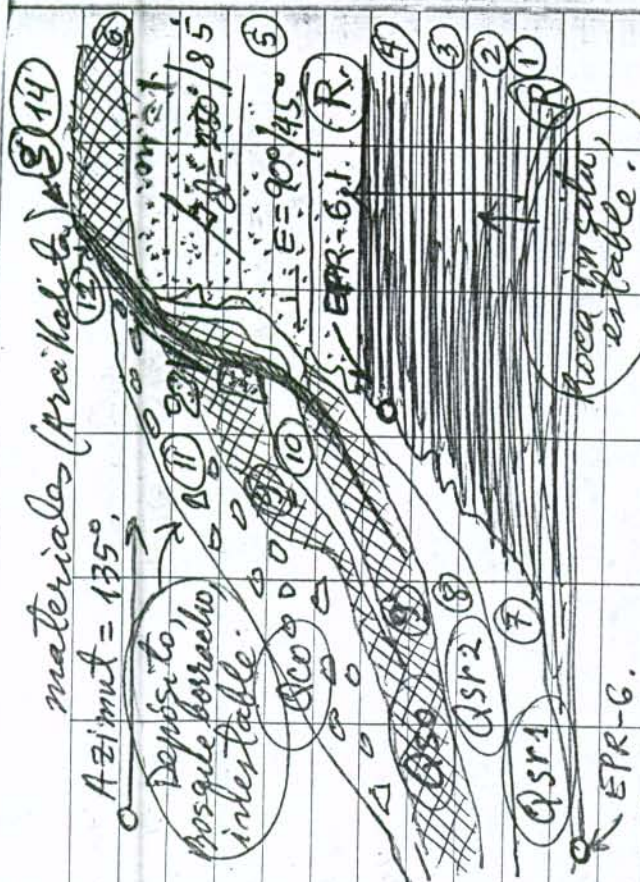 materiales (ProiKolita) 14
Azimut = 135°.
Depósito,
Bosque borracho,
inestable.
Qco
Qso
Qsr2
Qsr1
EPR-6.
EPR-6.1.
E=90°/45°
R
R
Roca in situ,
estable.
1
2
3
4
5
6
7
8
9
9
10
11
12